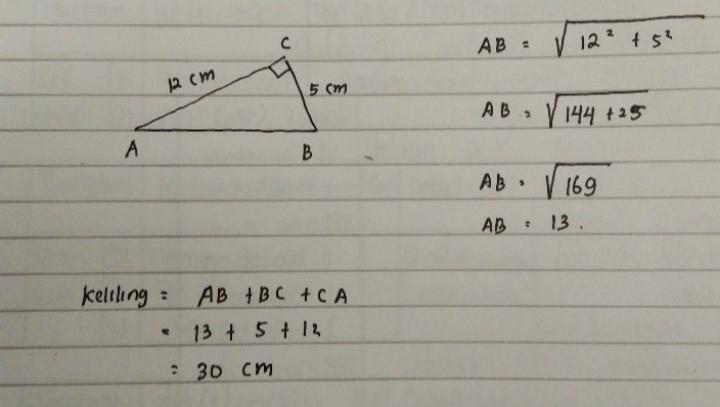 C
12 cm
5 cm
A
B
AB = √12² + 5²
AB = √144 + 25
AB = √169
AB = 13.
Keliling = AB + BC + CA
= 13 + 5 + 12
= 30 cm